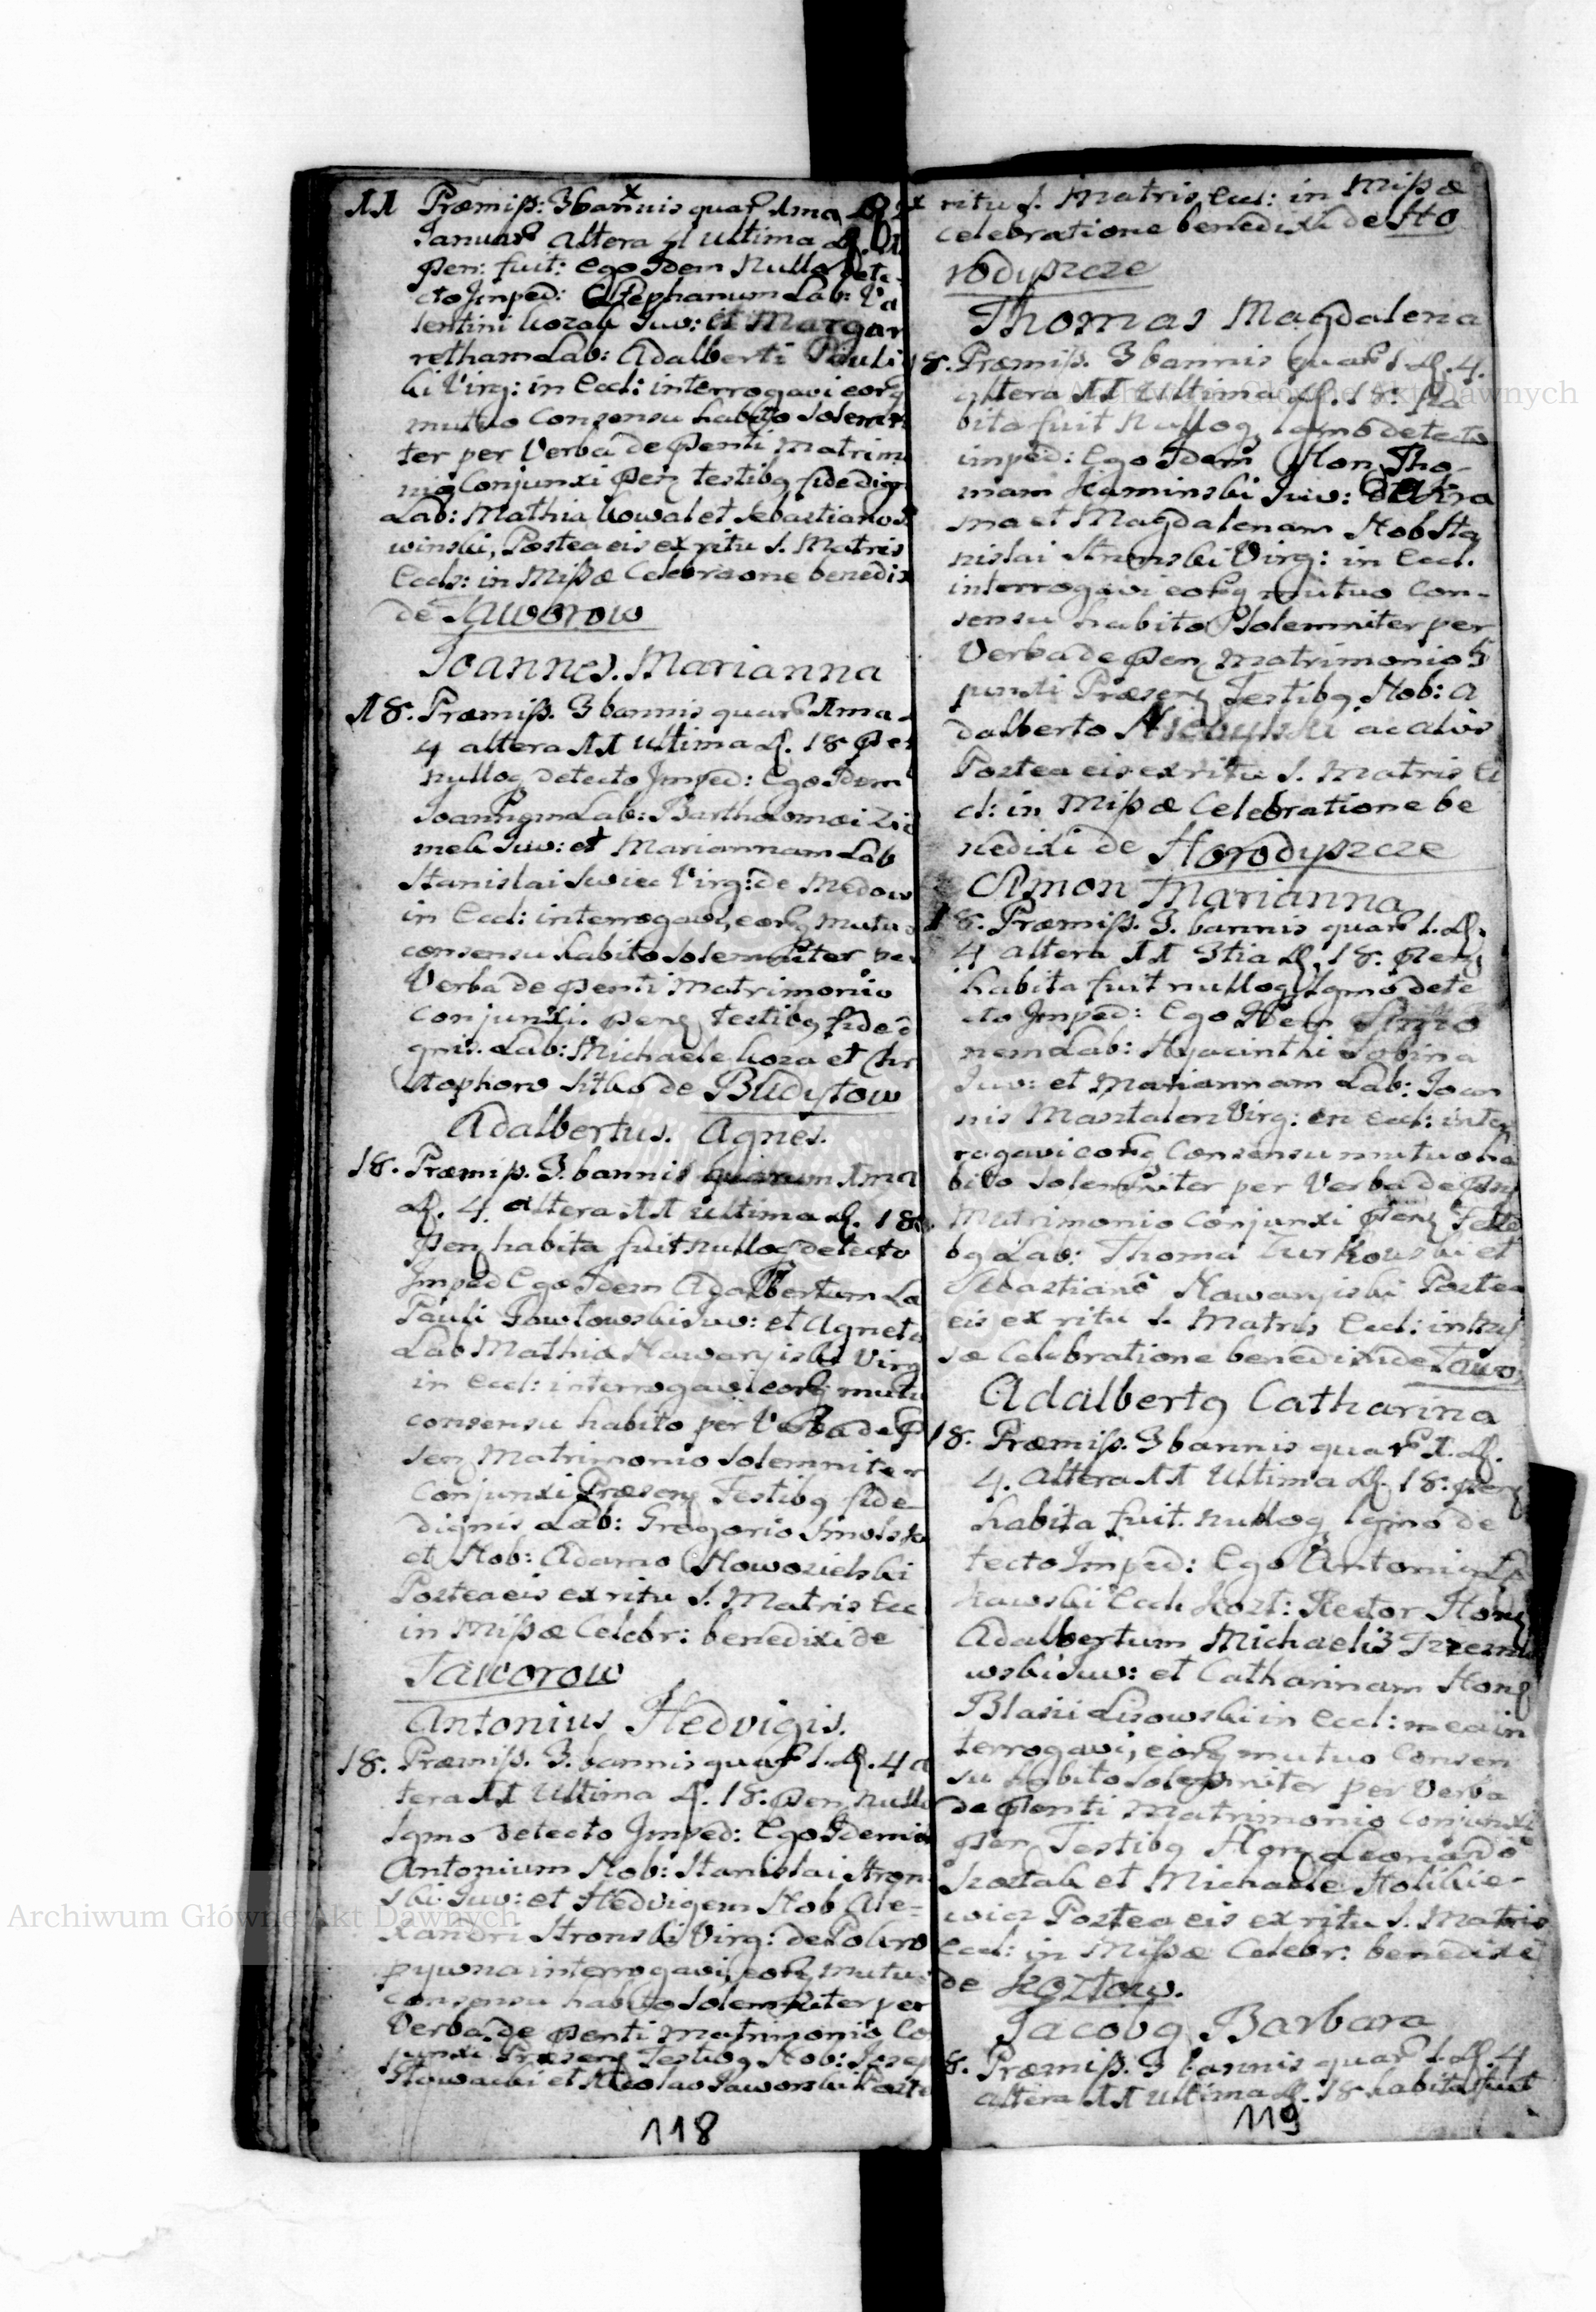 11 Præmiß: 3 bannis quar 1ma
Januar altera 4 ultima
pen: fuit: Ego Idem Nullo dete
cto Imped: Stephanum Lab: Va
lentini Kozak Juv: et Margar
retham Lab: Adalberti Pauli
ki Virg: in Eccl: interrogavi eorq
mutuo Consensu habito Solemni
ter per Verba de psenti Matrimo
nio Conjunxi psen testibq fide dign
Lab: Mathia Kowal et Sebastiano
winski, Postea eis ex ritu S. Matris
Eccls: in Mißæ Celebraone benedix
de Jaworow
Joannes. Marianna
18. Præmiß. 3 bannis quar 1ma
4 altera 11 ultima d. 18 pse
nulloq detecto Imped: Ego Idem
Joannem Lab: Bartholomæi
mek Juv: et Mariannam Lab
Stanislai Swiec Virg: de Medow
in Eccl: interrogavi, eorq mutuo
consensu habito Solemniter per
Verba de psenti Matrimonio
Conjunxi. psenq testibq fide d
gnis. Lab: Michaele Koza et Chr
istophoro Sitko de Budytow
Adalbertus. Agnes.
18. Præmiß. 3. bannis quarum 1ma
d. 4. altera 11 ultima d. 18.
psen habita fuit nulloq detecto
Imped Ego Idem Adalbertum La
Pauli Pawtowski Juv: et Agneta
Lab Mathia Nawaryiski Virg
in Eccl: interrogavi eorq mutu
consensu habito per Verba de p
sen Matrimonio Solemniter
Conjunxi Præsenq Testibq fide
dignis Lab: Gregorio Smolsk
et Nob: Adamo Nowosielski
Postea eis ex ritu S. Matris Ecc
in Mißæ Celebr: benedixi de
Jaworow
Antonius Hedvigis.
18. Præmiß. 3. bannis quar 1. d. 4 a
tera 11 Ultima d. 18. psen nullo
lqmo detecto Imped: Ego Idem
Antonium Nob: Stanislai Stron
ski Juv: et Hedvigem Nob Ale=
xandri Stronski Virg: de Pokro
pywna interrogavi, eorq mutuo
consensu habito Solemniter per
Verba de psenti Matrimonio Co
junxi Præsenq Testibq Nob: Josep
Stowacki et Nicolao Jaworski Poste
118
ritu S. Matris Eccl: in Mißæ
celebratione benedixi de Ho
rodyszcze
Thomas Magdalena
18. Præmiß. 3 bannis quar 1 d. 4.
altera 11 Ultima d. 18. ha
bita fuit Nulloq lqmo detecto
imped: Ego Idem Hon Tho-
mam Kaminski Juv:
et Magdalenam Nob Sta
nislai Stronski Virg: in Eccl.
interrogavi eorq mutuo Con-
sensu habito Solemniter per
Verba de psen Matrimonio
junxi Præsenq Testibq Nob: A
dalberto ac aliis
Postea eis ex ritu S. Matris Ec
cl: in Mißæ Celebratione be
nedixi de Horodyszcze
Simon Marianna
18. Præmiß. 3. bannis quar 1. d.
4 altera 11 3tia d. 18. psenq
habita fuit nulloq lqmo dete
cto Imped: Ego Idem Simo
nem Lab: Hyacinthi Sobina
Juv: et Mariannam Lab: Joan
nis Masztalerz Virg: in Eccl: inter
rogavi eorq Consensu mutuo ha
bito Solemniter per Verba de psen
Matrimonio Conjunxi psenq Testi
bq Lab: Thoma Turkowski et
Sebastiano Nawaryiski Postea
eis ex ritu S. Matris Eccl: in Miß
sæ Celebratione benedixi de Jawo
Adalbertq Catharina
18. Præmiß. 3 bannis quar 1. d.
4. altera 11 Ultima d. 18: psenq
habita fuit. nulloq lqmo de
tecto Imped: Ego Antonius
kawski Eccl. Kozt: Rector Hon
Adalbertum Michaelis
wski Juv: et Catharinam Honq
Blasii Lisowski in Eccl: mea in
terrogavi, eorq mutuo Consen
su habito Solemniter per Verba
de psenti Matrimonio Conjunxi
psen Testibq Honq Leonardo
et Michaele Holikie-
wicz Postea eis ex ritu S. Matris
Eccl: in Mißæ Celebr: benedixi
de Koztow.
Jacobq Barbara
8. Præmiß. 3 bannis quar 1. d. 4
altera 11 ultima d. 18 habita fuit
119
Archiwum Główne Akt Dawnych
Archiwum Główne Akt Dawnych